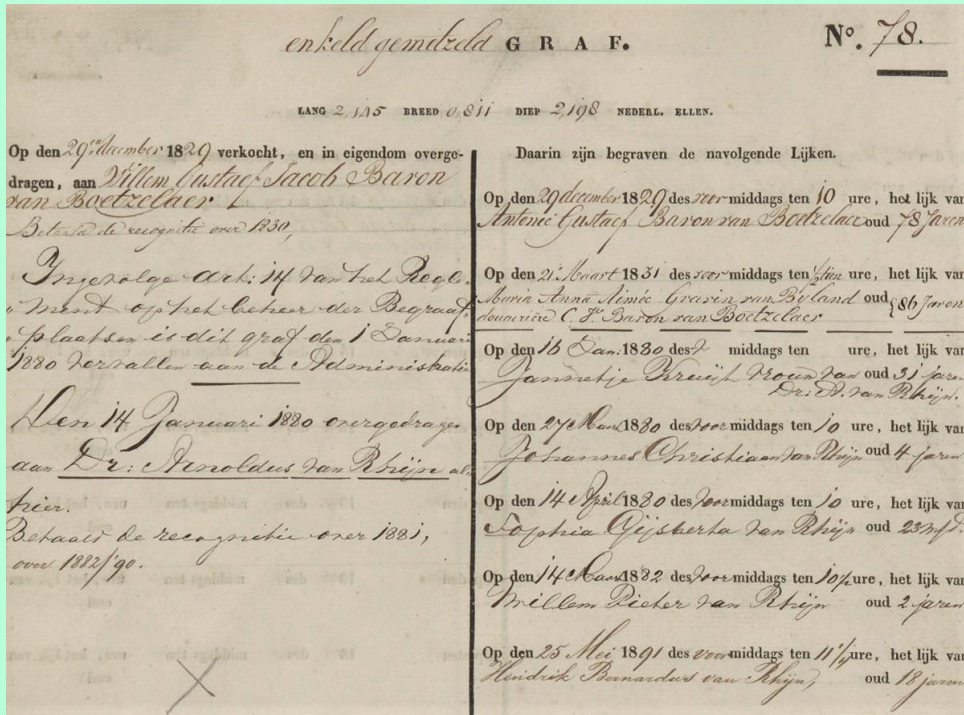 enkeld gemetzeld GRAF. No. 78.
LANG 2,145 BREED 0,811 DIEP 2,198 NEDERL. ELLEN.
Op den 29en december 1829 verkocht, en in eigendom overge-
dragen, aan Willem Gustaef Jacob Baron
van Boetzelaer
Betaald de recognitie over 1830,
Ingevolge art: 14 van het Regle-
" ment op het beheer der Begraaf-
" plaatsen is dit graf den 1 Januari
1880 vervallen aan de Administratie
Den 14 Januari 1880 overgedragen
aan Dr: Arnoldus van Rhijn al-
hier.
Betaald de recognitie over 1881,
over 1882/'90.
Daarin zijn begraven de navolgende Lijken.
Op den 29 december 1829 des voor middags ten 10 ure, het lijk van
Antonie Gustaef Baron van Boetzelaer oud 78 Jaren
Op den 21' Maart 1831 des voor middags ten ure, het lijk van
Maria Anna Aimée Gravin van Byland oud 86 Jaren
douairière C. Baron van Boetzelaer
Op den 16 Jan: 1880 des middags ten ure, het lijk van
Jannetje Kruijt vrouw van oud 31 jaren
Dr: A. van Rhijn.
Op den 27 Maart 1880 des voor middags ten 10 ure, het lijk van
Johannes Christiaan van Rhijn oud 4 jaren
Op den 14 April 1880 des voor middags ten 10 ure, het lijk van
Sophia Gijsberta van Rhijn oud 23 md.
Op den 14 Maart 1882 des voor middags ten 10½ ure, het lijk van
Willem Pieter van Rhijn oud 2 jaren
Op den 25 Mei 1891 des voor middags ten 11¼ ure, het lijk van
Hendrik Bernardus van Rhijn, oud 18 jaren